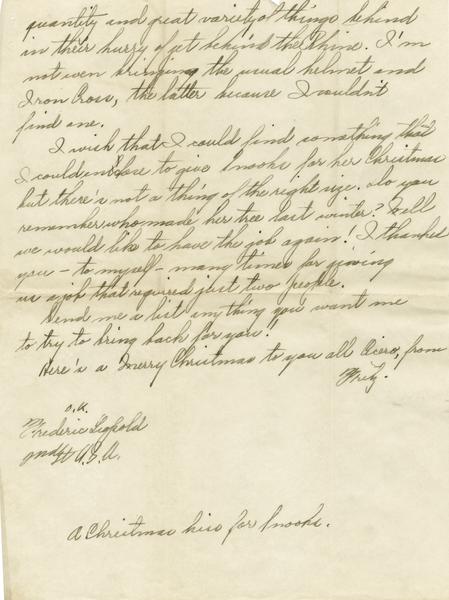 quantity and great variety of things behind
in their hurry of get behind the Rhine. I'm
not even bringing the usual helmet and
Iron Cross, the latter because I couldn't
find one.
I wish that I could find something that
I could enclose to give Snooks for her Christmas
but there's not a thing of the right size. Do you
remember who made her tree last winter? Well
we would like to have the job again! I thanked
you - to myself - many times for giving
us a job that required just two people.
Send me a list anything you want me
to try to bring back for you!
Here's a Merry Christmas to you all Cicero, from
Fritz.
O.K.
Frederic Leopold
2nd Lt A.S.A.
A Christmas kiss for Snooks.